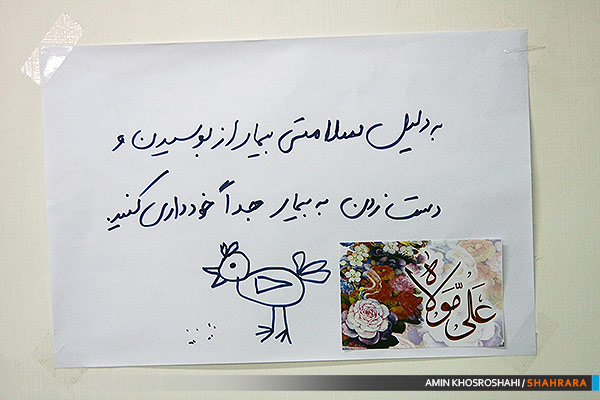 به دلیل سلامتی بیمار از بوسیدن و
دست زدن به بیمار جداً خودداری کنید.
علی مولاه
AMIN KHOSROSHAHI / SHAHRARA